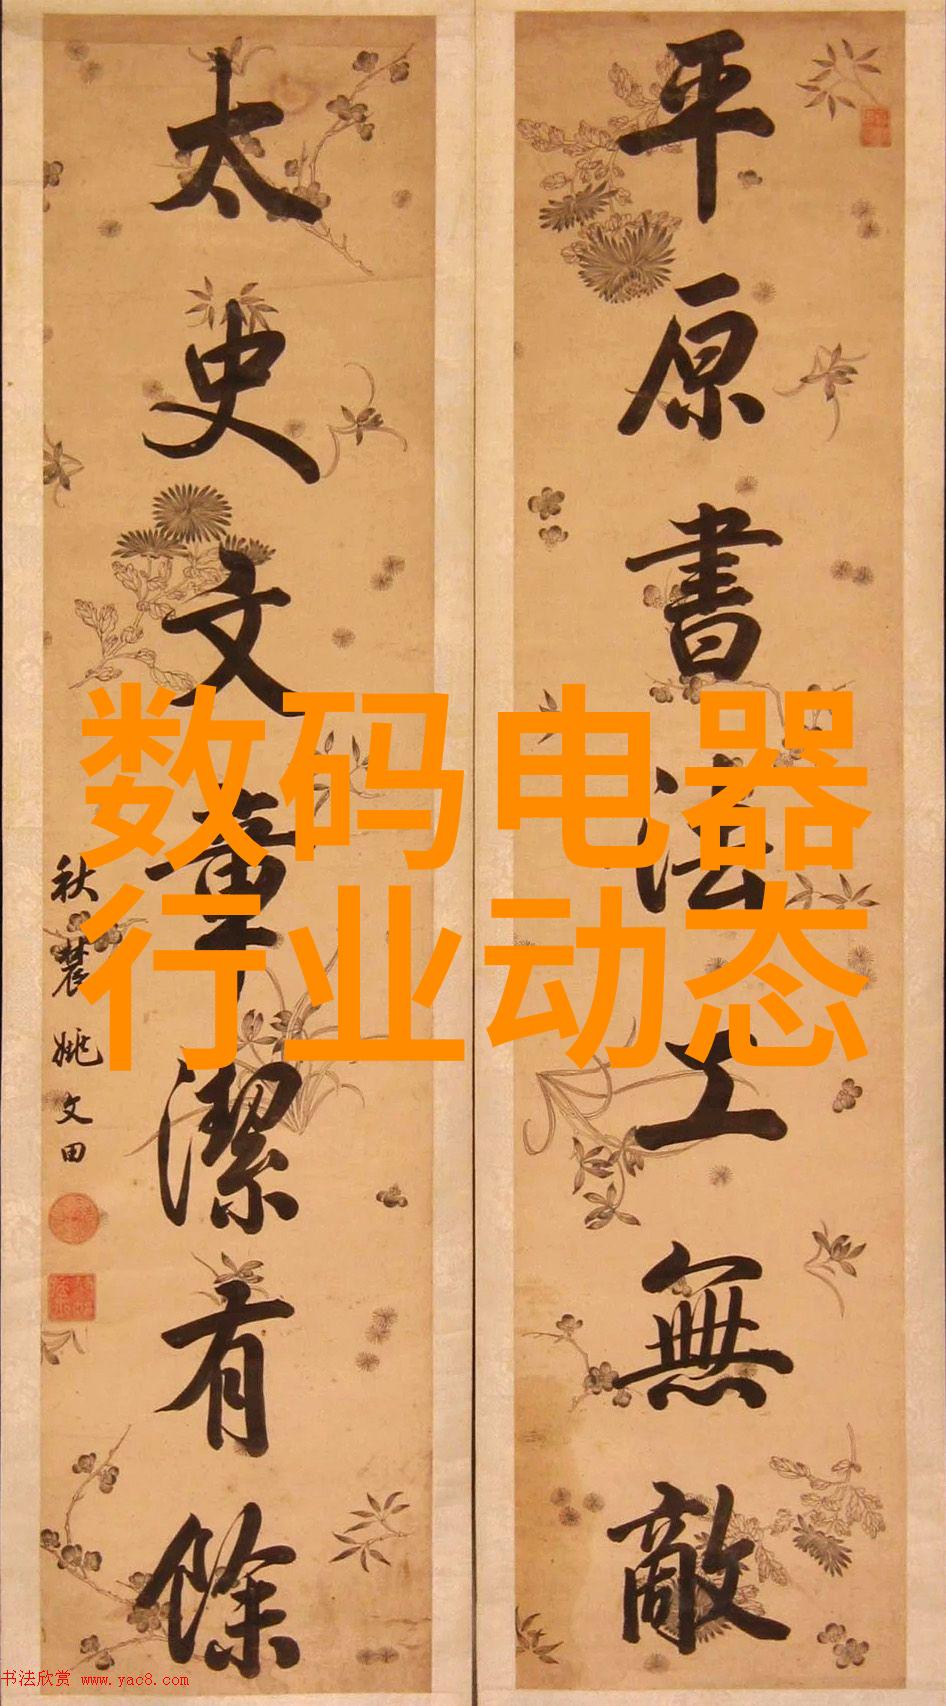 平原書法工無敵
太史文章潔有餘
秋農姚文田
数码电器
行业动态
书法欣赏 www.yac8.com